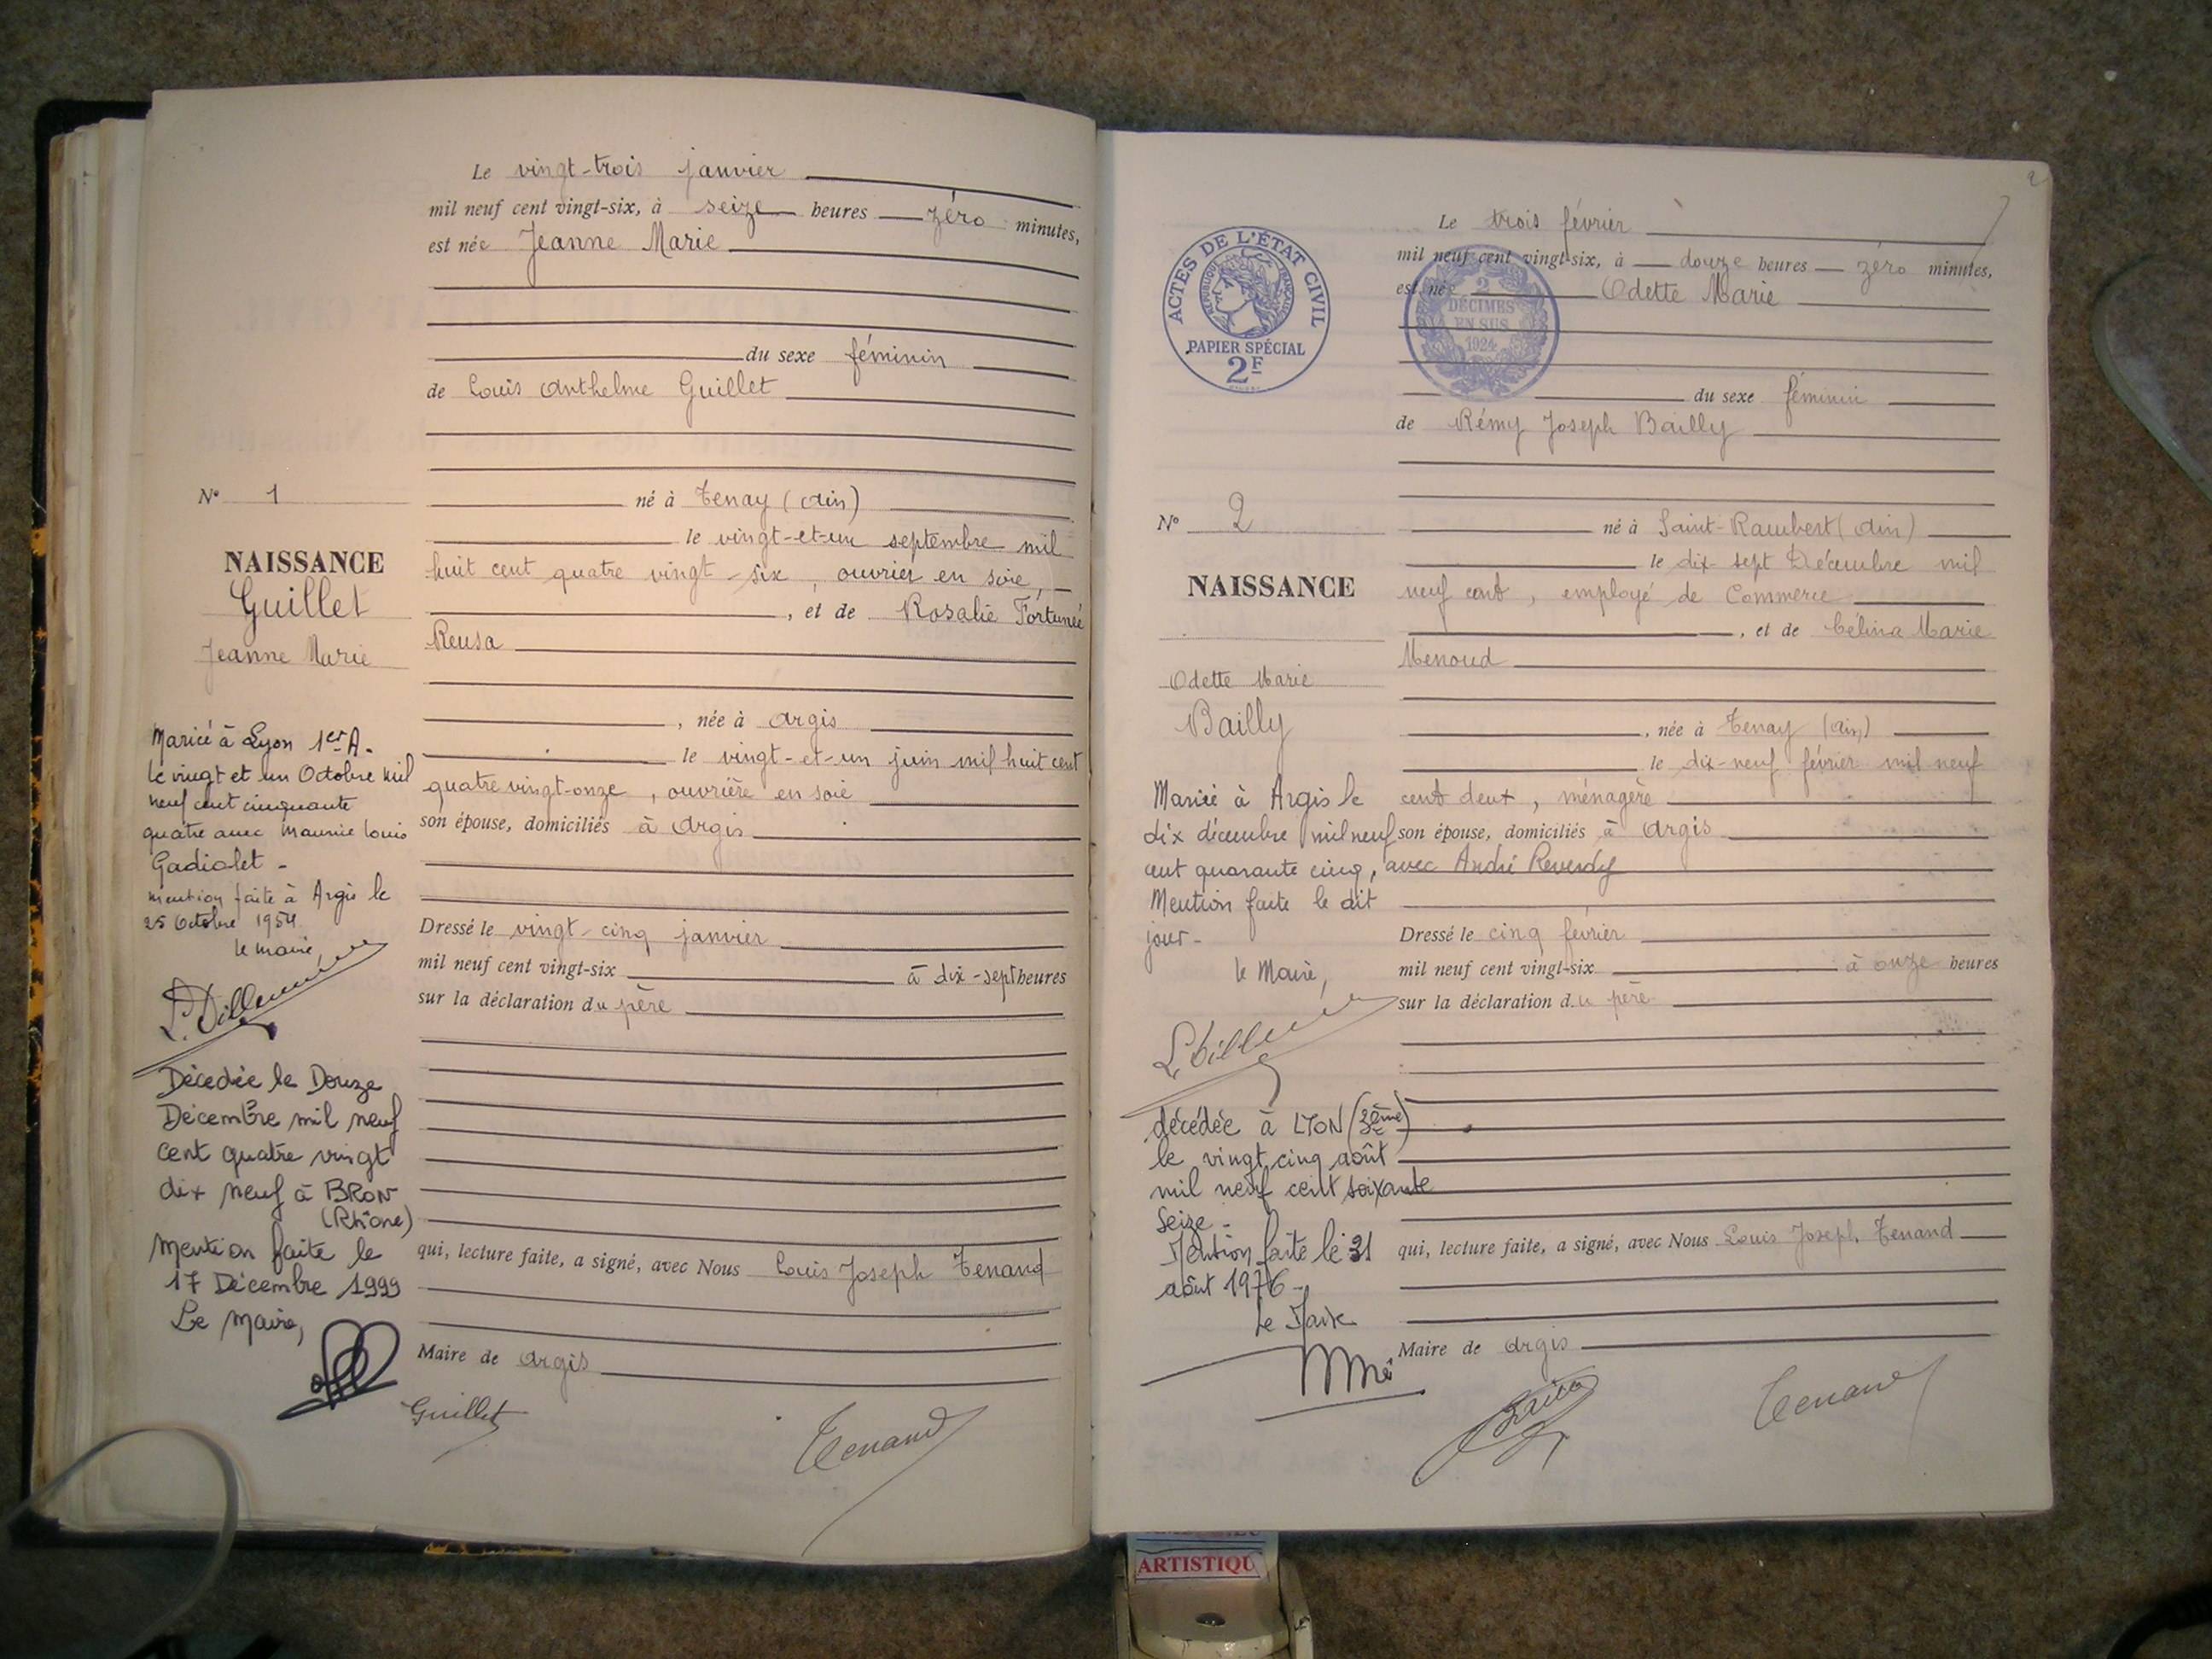 Le vingt-trois janvier
mil neuf cent vingt-six, à seize heures zéro minutes,
est née Jeanne Marie
du sexe féminin
de Louis Anthelme Guillet
né à Tenay (Ain)
le vingt-et-un septembre mil
huit cent quatre vingt-six, ouvrier en soie,
, et de Rosalie Fortunée
Reusa
, née à Argis
le vingt-et-un juin mil huit cent
quatre vingt-onze, ouvrière en soie
son épouse, domiciliés à Argis
Dressé le vingt-cinq janvier
mil neuf cent vingt-six à dix-sept heures
sur la déclaration du père
qui, lecture faite, a signé, avec Nous Louis Joseph Tenand
Maire de Argis
Guillet
Tenand
N° 1
NAISSANCE
Guillet
Jeanne Marie
Mariée à Lyon 1er A.
le vingt et un Octobre mil
neuf cent cinquante
quatre avec Maurice Louis
Gadiolet -
mention faite à Argis le
25 Octobre 1954
le maire,
Décedée le Douze
Décembre mil neuf
cent quatre vingt
dix neuf à BRON
(Rhône)
Mention faite le
17 Décembre 1999
Le Maire,
2
ACTES DE L'ÉTAT CIVIL
RÉPUBLIQUE FRANÇAISE
PAPIER SPÉCIAL
2F
2
DÉCIMES
EN SUS
1924
Le trois février
mil neuf cent vingt-six, à douze heures zéro minutes,
est née Odette Marie
du sexe féminin
de Rémy Joseph Bailly
né à Saint-Rambert (Ain)
le dix-sept Décembre mil
neuf cent, employé de Commerce
, et de Célina Marie
Menoud
, née à Tenay (Ain)
le dix-neuf février mil neuf
cent deux, ménagère
son épouse, domiciliés à Argis
Dressé le cinq février
mil neuf cent vingt-six à onze heures
sur la déclaration du père
qui, lecture faite, a signé, avec Nous Louis Joseph Tenand
Maire de Argis
Tenand
N° 2
NAISSANCE
Odette Marie
Bailly
Mariée à Argis le
dix décembre mil neuf
cent quarante cinq, avec André Reverdy
Mention faite le dit
jour -
le Maire,
décédée à LYON (3ème)
le vingt cinq août
mil neuf cent soixante
seize -
Mention faite le 31
août 1976 -
Le Maire
ARTISTIQU